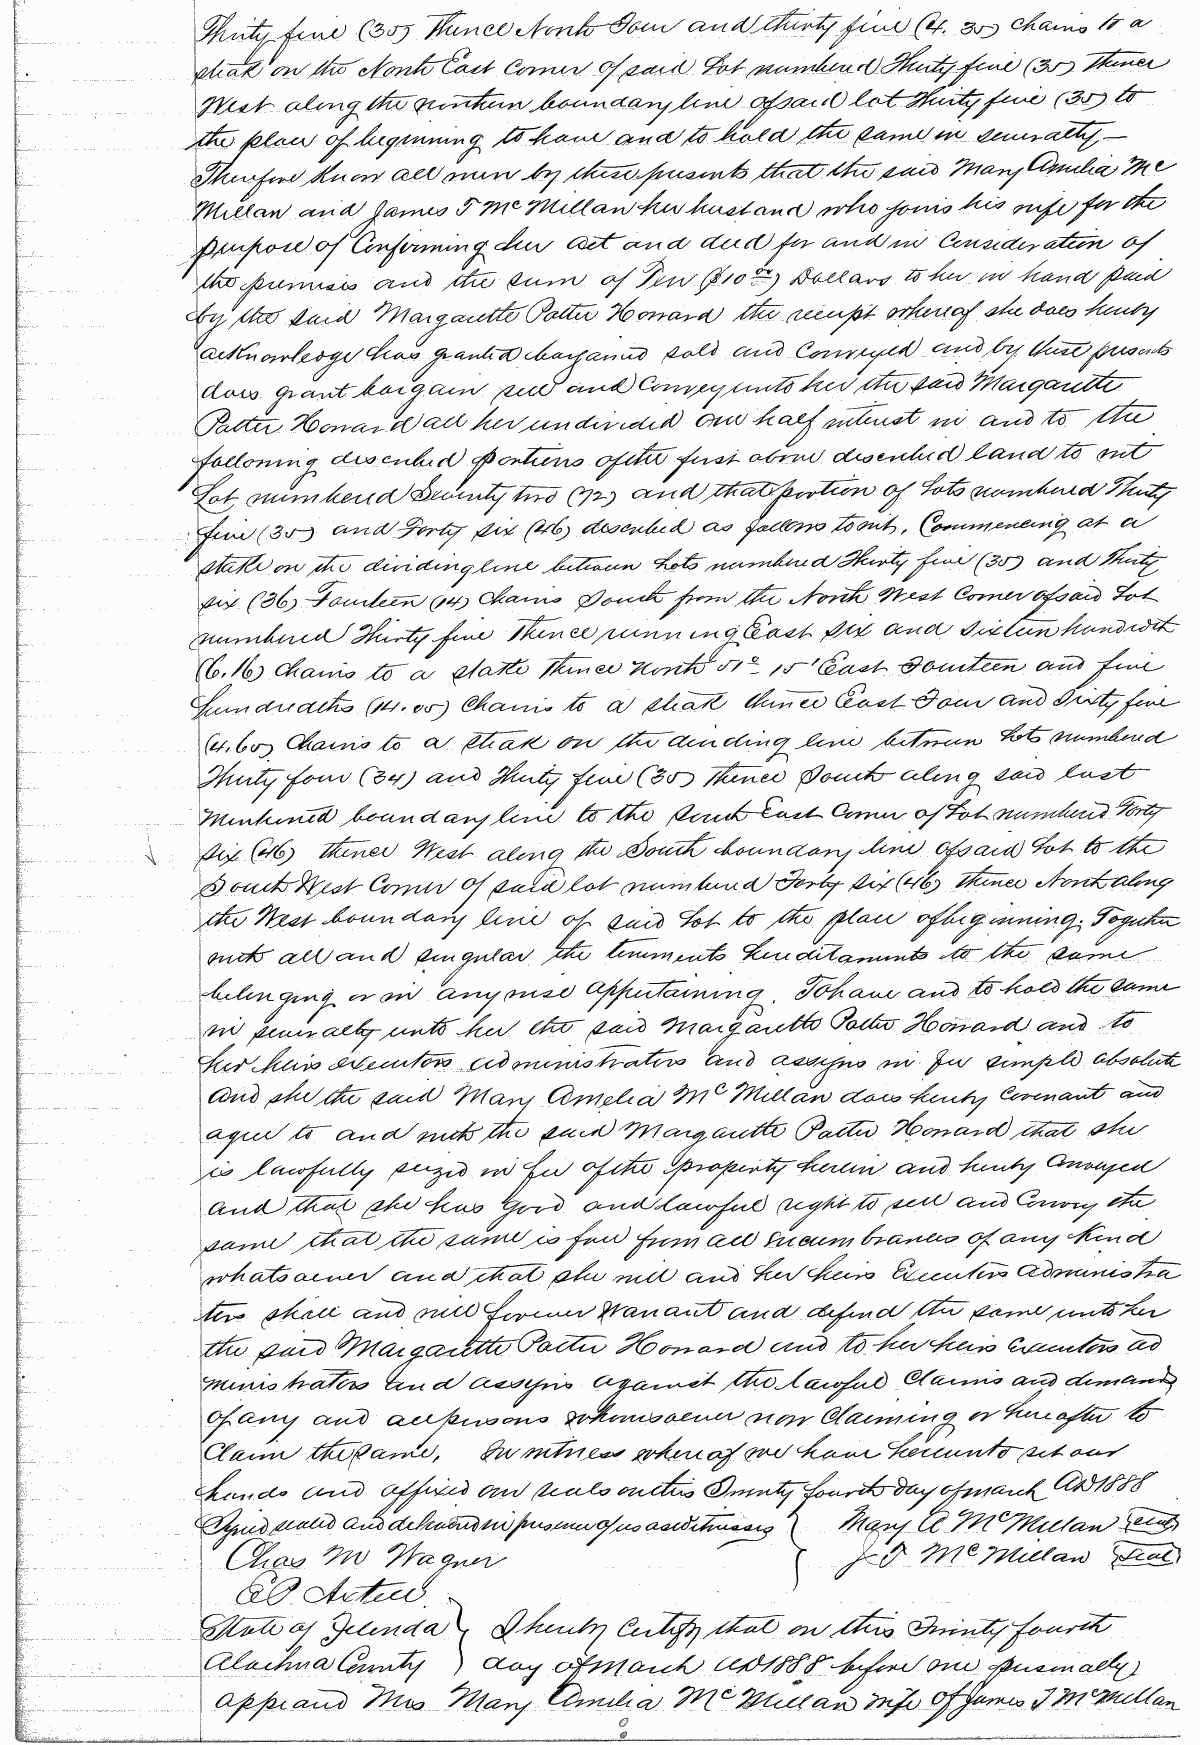 Thirty five (35) Thence North Four and thirty five (4.35) Chains to a
stak on the North East Corner of said Lot numbered Thirty five (35) Thence
West along the northern boundary line of said lot Thirty five (35) to
the place of beginning to have and to hold the same in severalty—
Therefore Know all men by these presents that the said Mary Amelia Mc
Millan and James T McMillan her husband who joins his wife for the
purpose of Confirming her act and deed for and in Consideration of
the premises and the sum of Ten ($10 00) Dollars to her in hand paid
by the said Margarette Potter Howard the receipt whereof she does hereby
acknowledge has granted bargained sold and Conveyed and by these presents
does grant bargain sell and Convey unto her the said Margarette
Potter Howard all her undivided one half interest in and to the
following described portions of the first above described land to wit
Lot numbered Seventy two (72) and that portion of Lots numbered Thirty
five (35) and Forty six (46) described as follows to wit, Commencing at a
stake on the dividing line between Lots numbered Thirty five (35) and Thirty
six (36) Fourteen (14) Chains South from the North West Corner of said Lot
numbered Thirty five Thence running East Six and Sixteen hundredth
(6.16) Chains to a stake Thence North 51° 15' East Fourteen and five
hundredths (14.05) Chains to a stak thence East Four and Sixty five
(4.65) Chains to a stak on the dividing line between Lots numbered
Thirty four (34) and Thirty five (35) Thence South along said last
Mentioned boundary line to the South East Corner of Lot numbered Forty
six (46) thence West along the South boundary line of said Lot to the
South West Corner of said lot numbered Forty Six (46) thence North along
the West boundary line of said Lot to the place of beginning. Together
with all and singular the tenements hereditaments to the same
belonging or in any wise appertaining. To have and to hold the same
in severalty unto her the said Margarette Potter Howard and to
her heirs executors administrators and assigns in fee simple absolute
And she the said Mary Amelia McMillan does hereby Covenant and
agree to and with the said Margarette Potter Howard that she
is lawfully seized in fee of the property herein and hereby Conveyed
and that she has good and lawful right to sell and Convey the
same that the same is free from all encumbrances of any Kind
whatsoever and that she will and her heirs Executors Administra
tors shall and will forever Warrant and defend the same unto her
the said Margarette Potter Howard and to her heirs Executors ad
ministrators and assigns against the lawful Claims and demands
of any and all persons whomsoever now Claiming or hereafter to
Claim the same. In witness whereof we have hereunto set our
hands and affixed our seals on this Twenty fourth day of March AD 1888
Signed sealed and delivered in presence of us as witnesses } Mary A McMillan Seal
Chas M Wagner } J T McMillan Seal
State of Florida } I hereby Certify that on this Twenty fourth
Alachua County } day of March AD 1888 before me personally
appeard Mrs Mary Amelia McMillan wife of James T McMillan